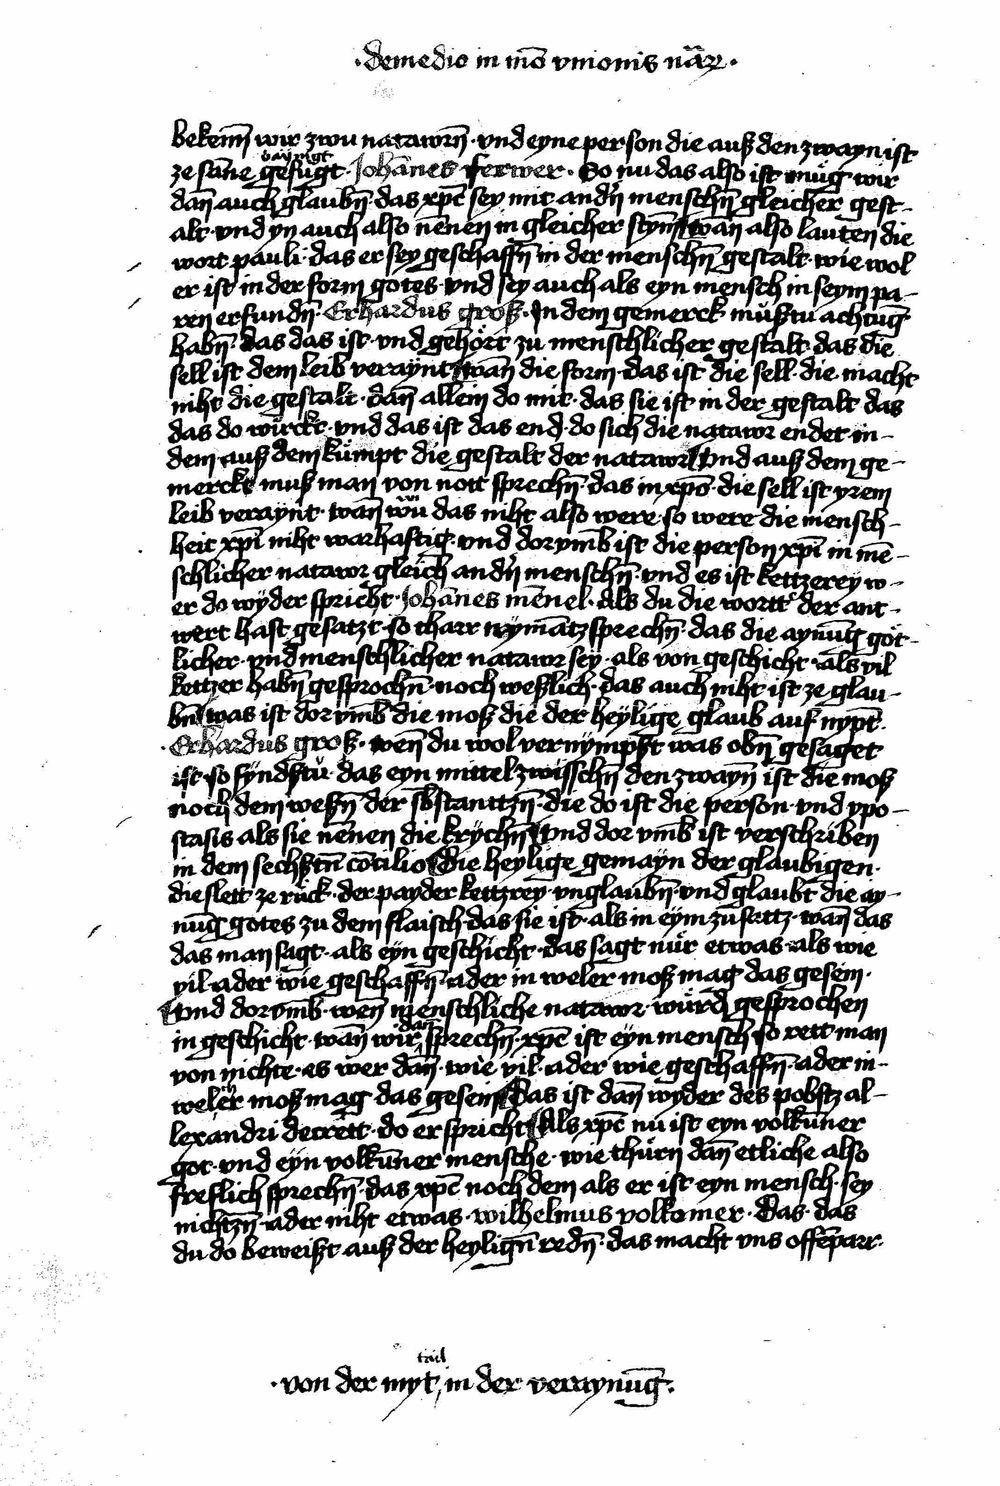 ·demedio in mō vnionis nāꝝ·
bekeñ wir zwu natawrñ· vnd eyne person die auß den zwayn ist
ze sāne gefügt· Johānes ferwer· So nu das also ist müg wir
dañ auch glaubñ· das xp̄c sey mit andñ menschñ gleicher gest-
alt· vnd yn auch also nēnen in gleicher stym̄ wañ also lauten die
wort pauli· das er sey geschaffñ in der menschñ gestalt· wie wol
er ist in der form gotes· vnd sey auch als eyn mensch in seym pa-
ren erfundñ· Erhardus groß· In dem gemerck mustu achtūg
habñ das das ist· vnd gehört zu menschlicher gestalt· das die
sell ist dem leib veraynt wañ die form· das ist die sell· die macht
niht die gestalt· dañ allein do mit· das sie ist in der gestalt das
das do würckt· vnd das ist das end· do sich die natawr endet in-
dem auß dem kümpt die gestalt der natawr Vnd auß dem ge-
merckt muß man von nott sprechñ· das in xp̄o· die sell ist yrem
leib veraynt· wañ wu das niht also were· so were die mensch-
heit xp̄i niht warhaftig· vnd dorvmb ist die person xp̄i in mē-
schlicher natawr gleich andñ menschñ· vnd es ist kettzerey w-
er do wyder spricht· Johānes mēnel· Als du die wortt der ant-
wert hast gesatzt· so tharr nymātz sprechñ· das die aynūg göt-
licher· vnd menschlicher natawr sey· als von geschicht· als vil
kettzer habñ gesprochñ· noch weßlich· das auch niht ist ze glau-
bñ was ist dorvmb die moß die der heylige glaub auf nypt·
·Erhardus groß· wen̄ du wol vernympst was obñ gesaget
ist· so fyndstu· das eyn mittel zwisschñ den zwayñ ist die moß
noch dem weßñ der sbstanttzñ· die do ist die person· vnd ypo-
stasis als sie nēnen die krychñ Vnd dor vmb ist verschriben
in dem sechßtñ cōcilio Die heylige gemayn der glaubigen·
die slett ze rück· der payder kettzrey· vnglaubñ· vnd glaubt die ay-
nūg gotes zu dem flaisch· das sie ist· als in eym zusattz· wañ das
das man sagt· als eyn geschicht· das sagt nür etwas· als wie
vil· ader wie geschaffñ· ader in weler moß mag das gesein·
Vnd dorvmb· weñ menschliche natawr· würd gesprochen
in geschicht· wañ wir dañ sprechñ· xp̄c ist eyn mensch so rett man
von nichte· es wer dañ· wie vil· ader wie geschaffñ· ader in-
weler moß mag das gesein Das ist dañ wyder des pobstz al-
lexandri decrett· do er spricht Als xp̄c nu ist eyn volkum̄er
got· vnd eyn volkum̄er mensche· wie thürñ dañ etliche also
freslich sprechñ· das xp̄c noch dem als er ist eyn mensch· sey
nichtzñ· ader niht etwas· wilhelmus volkamer· Das· das
du do beweißt auß der heyligñ redñ· das macht vns offēparr·
·von der myt tail in der veraynūg·